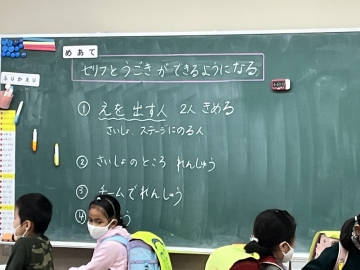 めあて
セリフとうごきができるようになる
ふりかえり
① えを出す人 2人きめる
さいしょ ステージにのる人
② さいしょのところ れんしゅう
③ チームでれんしゅう
④